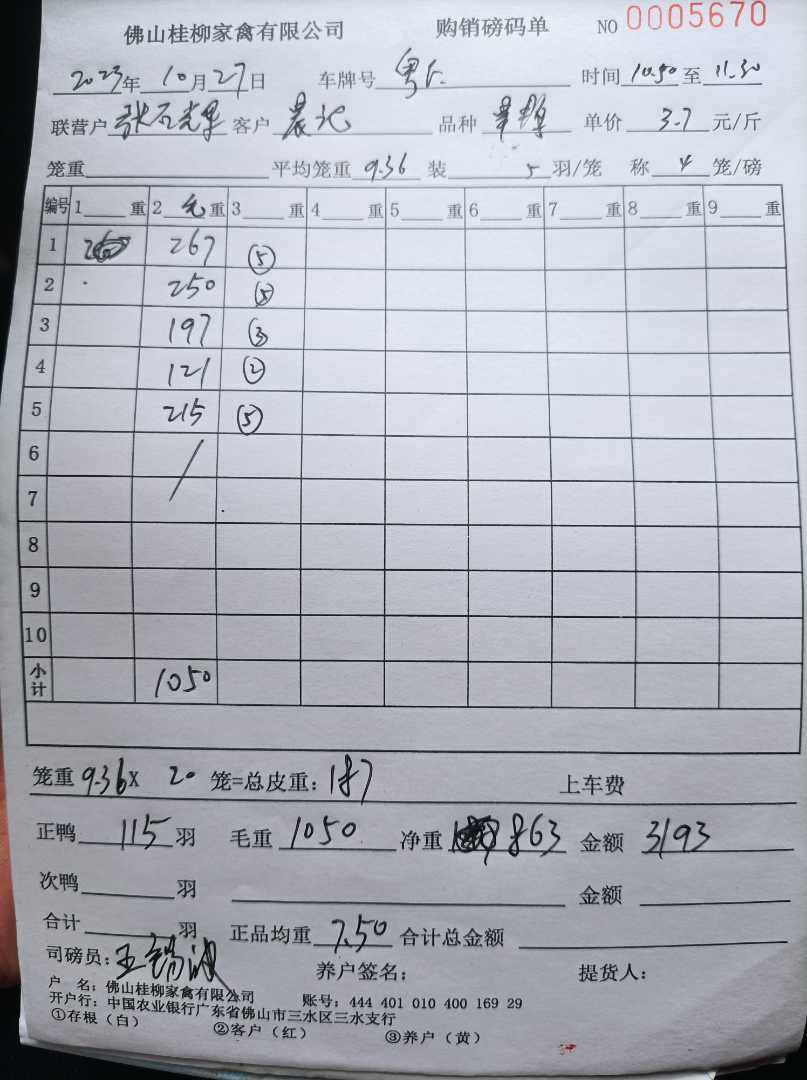 佛山桂柳家禽有限公司 购销磅码单 NO 0005670
2023年10月27日 车牌号 粤 时间 10.50 至 11.30
联营户 张石 客户 晨记 品种 单价 3.7 元/斤
笼重 平均笼重 9.36 装 5 羽/笼 称 4 笼/磅
编号 1 重 2 毛 重 3 重 4 重 5 重 6 重 7 重 8 重 9 重
1 267 ⑤
2 250 ⑤
3 197 ③
4 121 ②
5 215 ⑤
6 /
7
8
9
10
小计 1050
笼重 9.36 X 20 笼=总皮重: 187 上车费
正鸭 115 羽 毛重 1050 净重 863 金额 3193
次鸭 羽 金额
合计 羽 正品均重 7.50 合计总金额
司磅员: 王锡波 养户签名: 提货人:
户 名: 佛山桂柳家禽有限公司 账号: 444 401 010 400 169 29
开户行: 中国农业银行广东省佛山市三水区三水支行
①存根(白) ②客户(红) ③养户(黄)